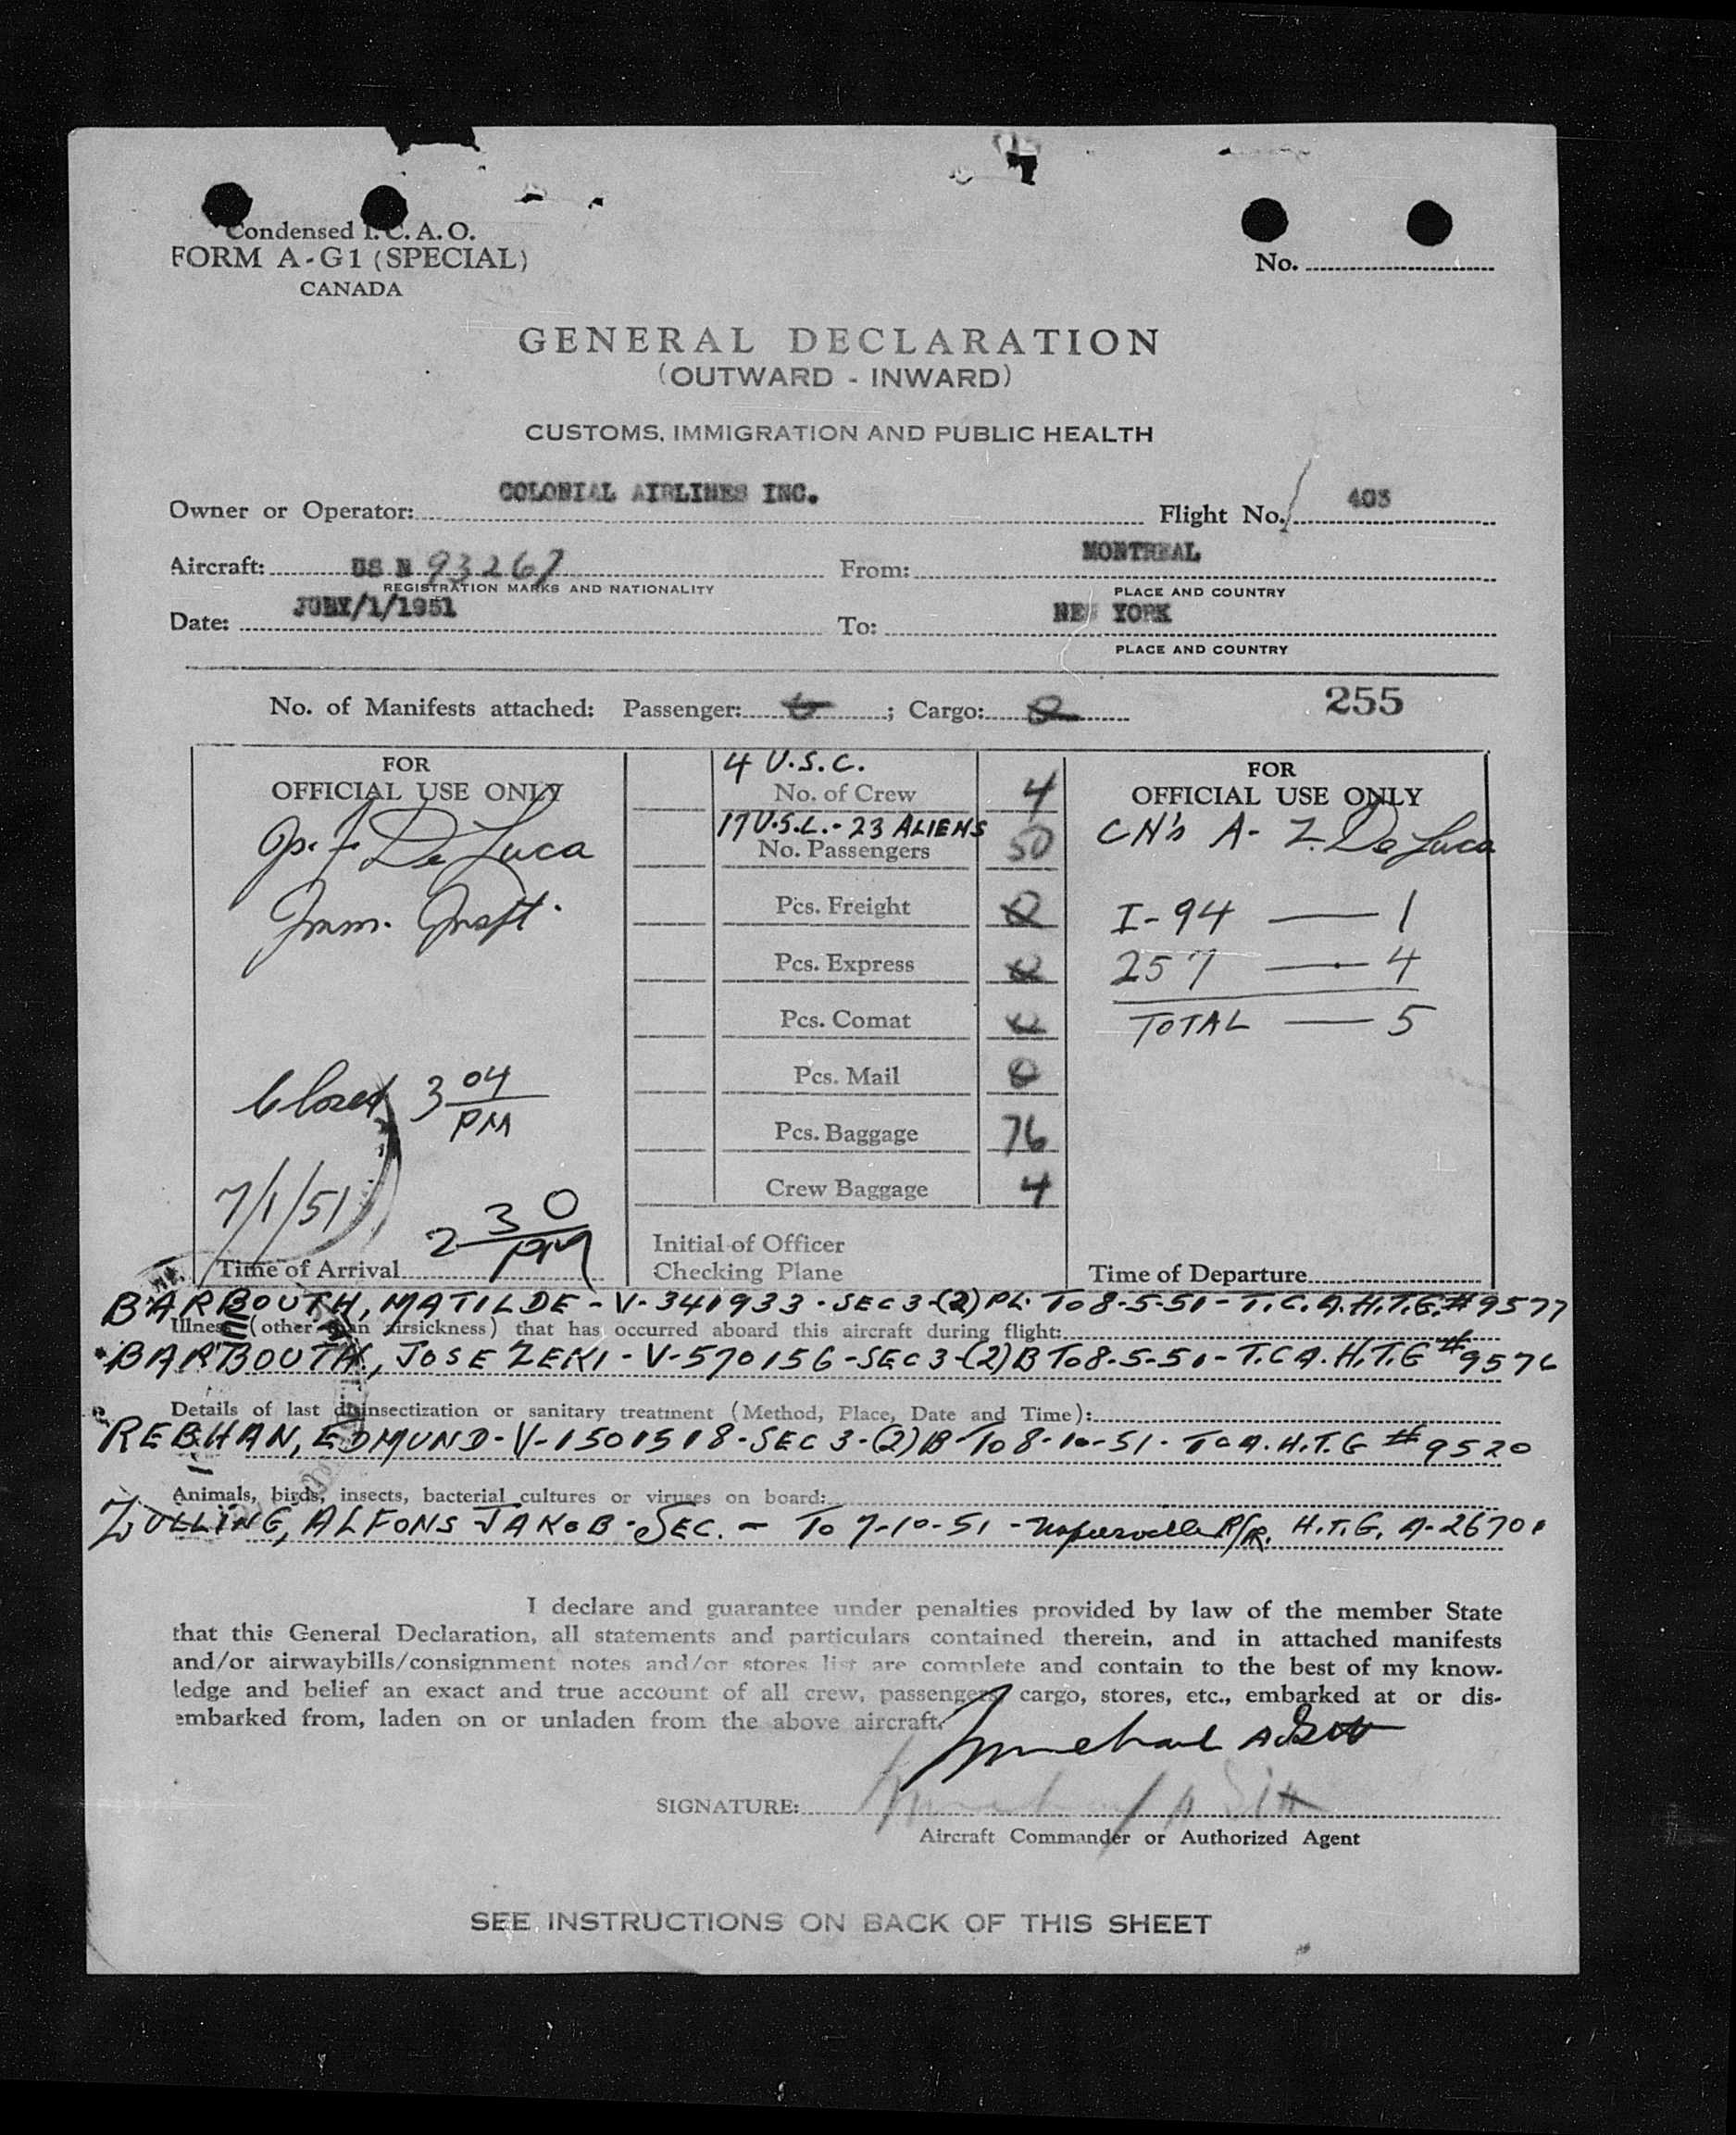 Condensed I.C.A.O.
FORM A-G1 (SPECIAL)
CANADA
No.
GENERAL DECLARATION
(OUTWARD - INWARD)
CUSTOMS, IMMIGRATION AND PUBLIC HEALTH
Owner or Operator: COLONIAL AIRLINES INC. Flight No. 403
Aircraft: US N 93267 From: MONTREAL
REGISTRATION MARKS AND NATIONALITY PLACE AND COUNTRY
Date: JULY/1/1951 To: NEW YORK
PLACE AND COUNTRY
No. of Manifests attached: Passenger: ; Cargo: 0 255
FOR
OFFICIAL USE ONLY
De Luca
Imm. Inspt.
Closed 3 04 PM
7/1/51
2 30 PM
Time of Arrival
4 U.S.C.
No. of Crew 4
23 ALIENS
No. Passengers 50
Pcs. Freight 0
Pcs. Express 0
Pcs. Comat 0
Pcs. Mail 0
Pcs. Baggage 76
Crew Baggage 4
Initial of Officer
Checking Plane
FOR
OFFICIAL USE ONLY
De Luca
I-94 — 1
257 — 4
TOTAL — 5
Time of Departure
BARBOUTH, MATILDE - V-341933 - SEC 3-(2) PL. To 8-5-51 - T.C.A. H.T.G. #9577
Illness (other than airsickness) that has occurred aboard this aircraft during flight:
BARBOUTH, JOSE ZEKI - V-570156 - SEC 3-(2)B To 8-5-51 - T.C.A. H.T.G #9576
Details of last disinsectization or sanitary treatment (Method, Place, Date and Time):
REBHAN, EDMUND - V-1501518 - SEC 3-(2)B To 8-10-51 - TCA. H.T.G #9520
Animals, birds, insects, bacterial cultures or viruses on board:
ZULLING, ALFONS JAKOB - SEC. - To 7-10-51 - R/R. H.T.G. A-26701
I declare and guarantee under penalties provided by law of the member State
that this General Declaration, all statements and particulars contained therein, and in attached manifests
and/or airwaybills/consignment notes and/or stores list are complete and contain to the best of my know-
ledge and belief an exact and true account of all crew, passengers, cargo, stores, etc., embarked at or dis-
embarked from, laden on or unladen from the above aircraft.
SIGNATURE:
Aircraft Commander or Authorized Agent
SEE INSTRUCTIONS ON BACK OF THIS SHEET